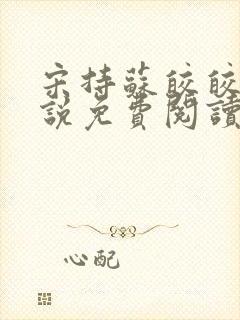 宋持蘇皎皎
說免費閱讀
心配